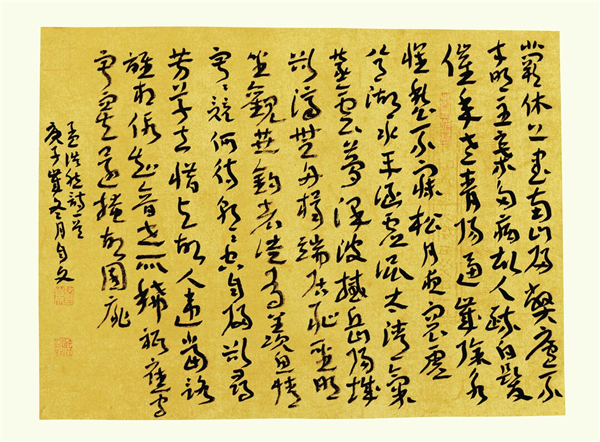 北闕休上書南山歸弊廬不
才明主棄多病故人疏白髮
催年老青陽逼歲除永
懷愁不寐松月夜窗虛
八月湖水平涵虛混太清氣
蒸雲夢澤波撼岳陽城
欲濟無舟楫端居恥聖明
坐觀垂釣者徒有羨魚情
寂寂竟何待朝朝空自歸欲尋
芳草去惜與故人違當路
誰相假知音世所稀祗應守
寂寞還掩故園扉
孟浩然詩三首
庚子歲冬月自文